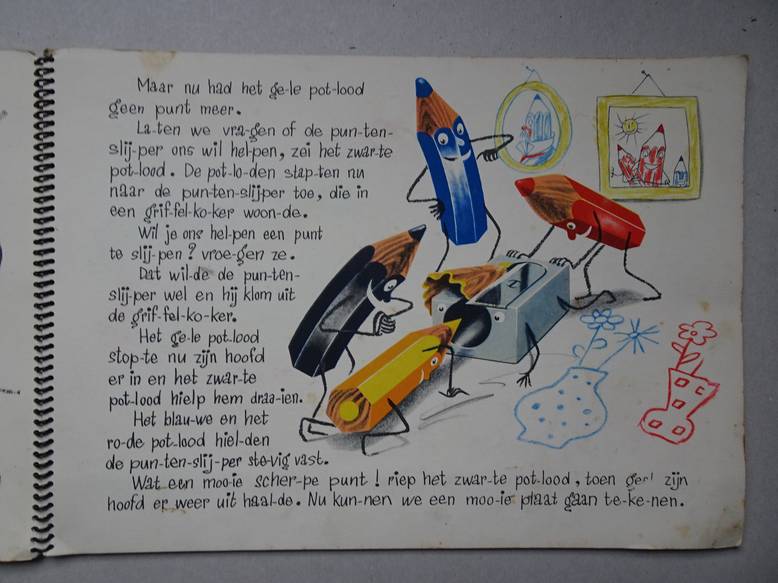 Maar nu had het ge-le pot-lood
geen punt meer.
La-ten we vra-gen of de pun-ten-
slij-per ons wil hel-pen, zei het zwar-te
pot-lood. De pot-lo-den stap-ten nu
naar de pun-ten-slijper toe, die in
een grif-fel-ko-ker woon-de.
Wil je ons hel-pen een punt
te slij-pen? vroe-gen ze.
Dat wil-de de pun-ten-
slij-per wel en hij klom uit
de grif-fel-ko-ker.
Het ge-le pot-lood
stop-te nu zijn hoofd
er in en het zwar-te
pot-lood hielp hem draa-ien.
Het blau-we en het
ro-de pot-lood hiel-den
de pun-ten-slij-per ste-vig vast.
Wat een moo-ie scher-pe punt! riep het zwar-te pot-lood, toen geel zijn
hoofd er weer uit haal-de. Nu kun-nen we een moo-ie plaat gaan te-ke-nen.